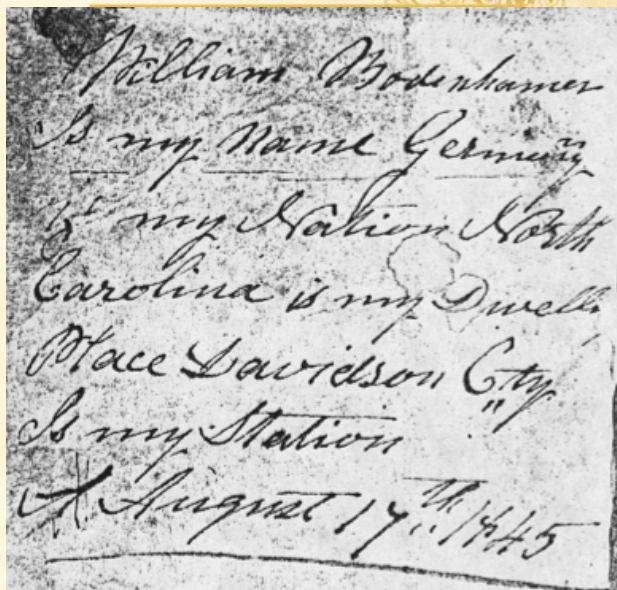 William Bodenhamer
Is my Name Germany
Is my Nation North
Carolina is my Dwell
Place Davidson Cty
Is my Station
August 17th 1845